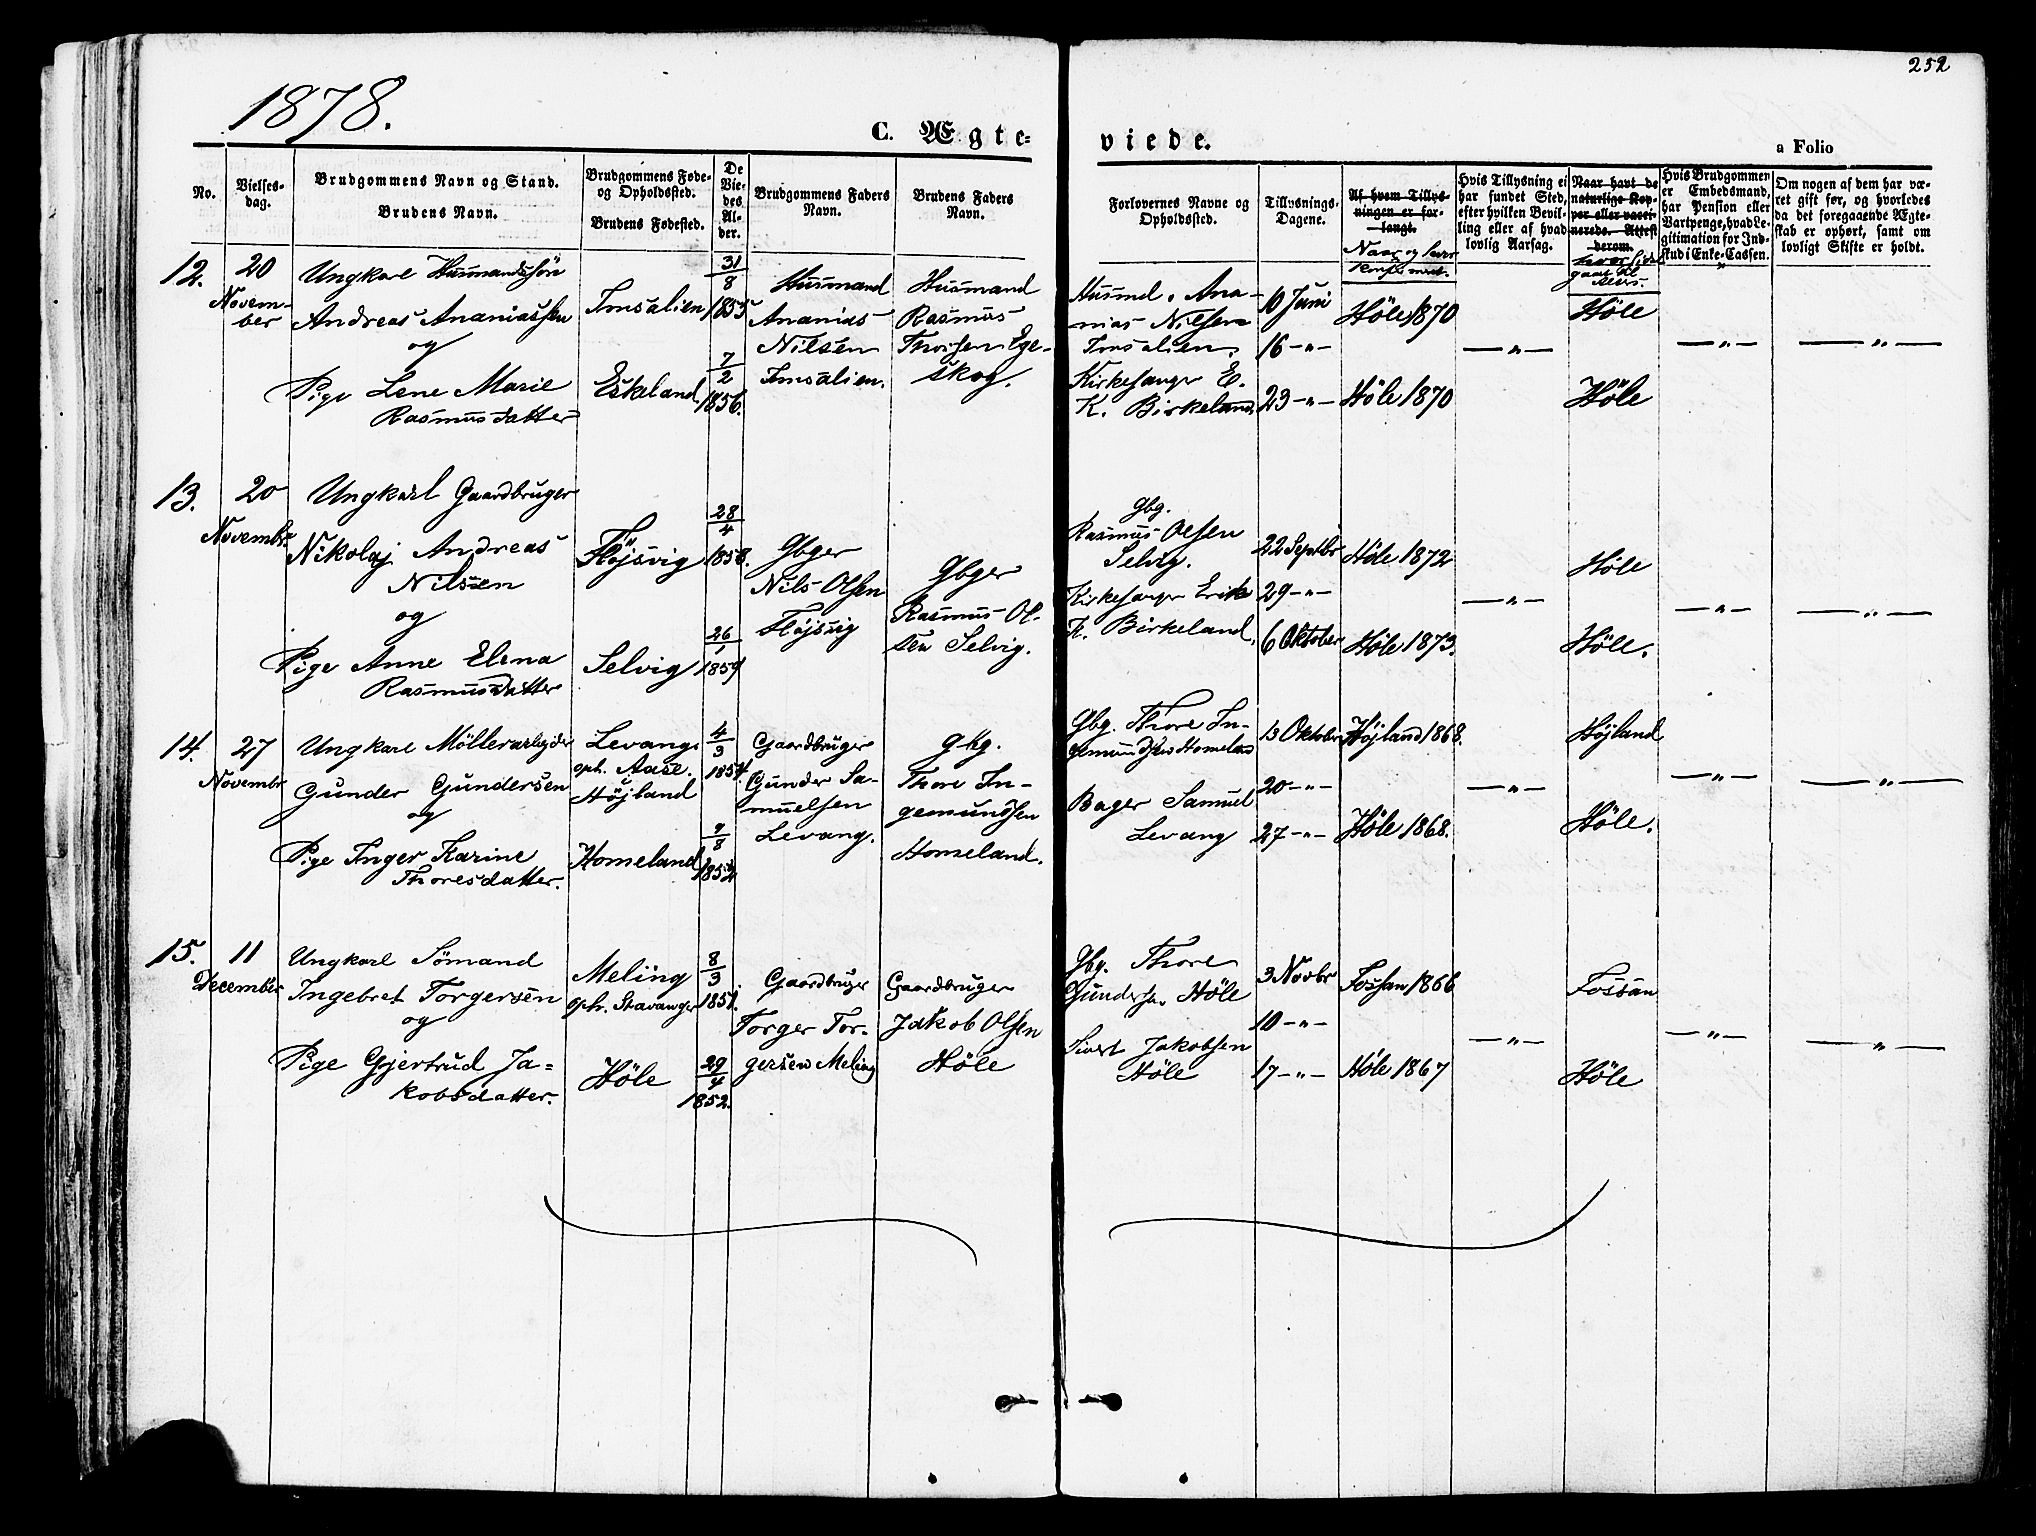 252
1878.
C. Ægte-
viede.
a Folio
No.
Vielses-
dag.
Brudgommens Navn og Stand.
Brudens Navn.
Brudgommens Føde-
og Opholdssted.
Brudens Fødested.
De
Vie-
des
Al-
der.
Brudgommens Faders
Navn.
Brudens Faders
Navn.
Forlovernes Navne og
Opholdssted.
Tillysnings-
Dagene.
Af hvem Tillys-
ningen er for-
langt.
Naar og hvor
konfirmeret.
Hvis Tillysning ei
har fundet Sted,
efter hvilken Bevil-
ling eller af hvad
lovlig Aarsag.
Naar havt de
naturlige Kop-
per eller vacci-
nerede. Attest
derom.
gaaet til
Hvis Brudgommen
er Embedsmand,
har Pension eller
Vartpenge, hvad Le-
gitimation for Ind-
skud i Enke-Cassen.
Om nogen af dem har væ-
ret gift før, og hvorledes
da det foregaaende Ægte-
skab er ophørt, samt om
lovligt Skifte er holdt.
12.
20
Novem-
ber
Ungkarl Husmandssön
Andreas Ananiassen
og
Pige Lene Marie
Rasmusdatter
Imsalien
Eskeland
31/8
1855
7/2
1856.
Husmand
Ananias
Nilsen
Imsalien.
Husmand
Rasmus
Thorsen Ege-
skog.
Husmd. Ana-
nias Nilsen
Imsalien.
Kirkesanger E.
K. Birkeland
10 Juni
16 -"-
23 -"-
Höle 1870
Höle 1870
-"-
Höle
Höle
-"-
-"-
13.
20
Novembr.
Ungkarl Gaardbruger
Nikolaj Andreas
Nilsen
og
Pige Anne Elena
Rasmusdatter
Fløjsvig
Selvig
28/4
1858.
26/1
1859
Gbger
Nils Olsen
Fløjsvig
Gbger
Rasmus Ol-
sen Selvig.
Gbg.
Rasmus Olsen
Selvig.
Kirkesanger Erik
K. Birkeland.
22 Septbr
29 -"-
6 Oktober
Höle 1872
Höle 1873.
-"-
Höle
Höle.
-"-
-"-
14.
27
Novembr
Ungkarl Möllerarbejder
Gunder Gundersen
og
Pige Inger Karine
Thoresdatter.
Levang
oph. Aase.
Höjland
Homeland
4/3
1854.
9/8
1852
Gaardbruger
Gunder Sa-
muelsen
Levang.
gbg.
Thore In-
gemundsen
Homeland.
Gbg. Thore In-
gemundsen Homeland
Bager Samuel
Levang
13 Oktober
20 -"-
27 -"-
Höjland 1868.
Höle 1868.
-"-
Höjland
Höle.
-"-
-"-
15.
11
December
Ungkarl Sömand
Ingebret Torgersen
og
Pige Gjertrud Ja-
kobsdatter.
Meling
oph. Stavanger
Höle
8/3
1851.
29/4
1852.
Gaardbruger
Torger Tor-
gersen Meling
Gaardbruger
Jakob Olsen
Höle
Gbg. Thore
Gundersen Höle
Sivert Jakobsen
Höle
3 Novbr
10 -"-
17 -"-
Fossan 1866
Höle 1867
-"-
Fossan
Höle
-"-
-"-